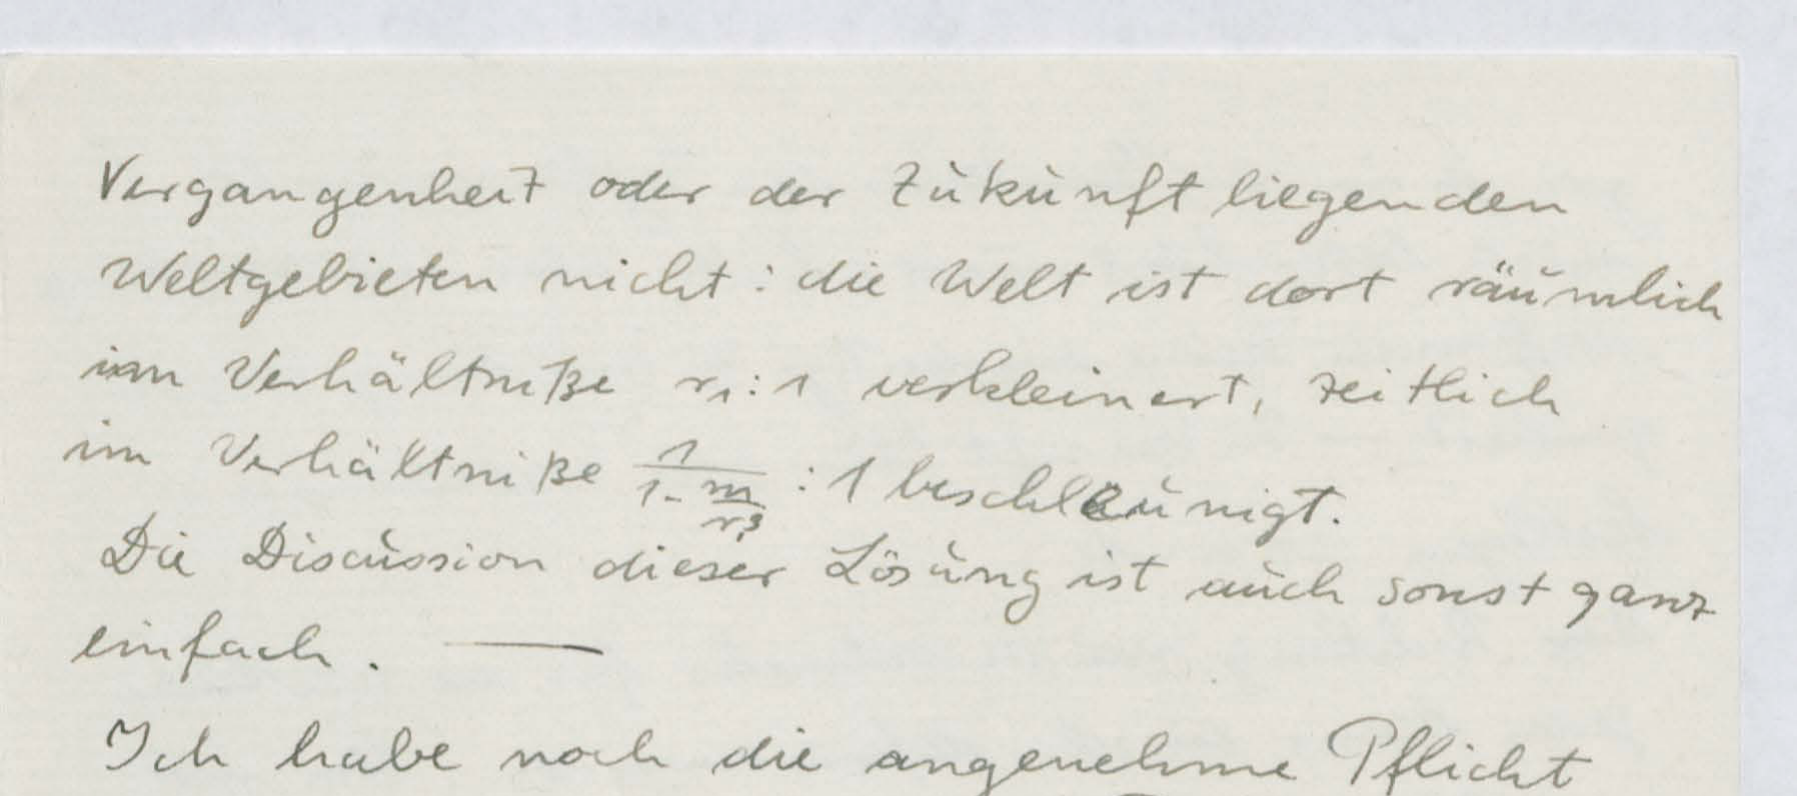 Vergangenheit oder der Zukunft liegenden
Weltgebieten nicht: die Welt ist dort räumlich
im Verhältniße r₁:1 verkleinert, zeitlich
im Verhältniße 1/(1-m/r³) : 1 beschleunigt.
Die Discussion dieser Lösung ist auch sonst ganz
einfach. —
Ich habe noch die angenehme Pflicht